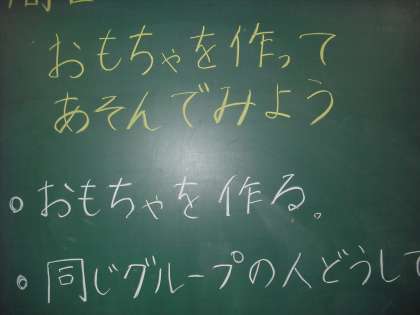 おもちゃを作って
あそんでみよう
。おもちゃを作る。
。同じグループの人どうして